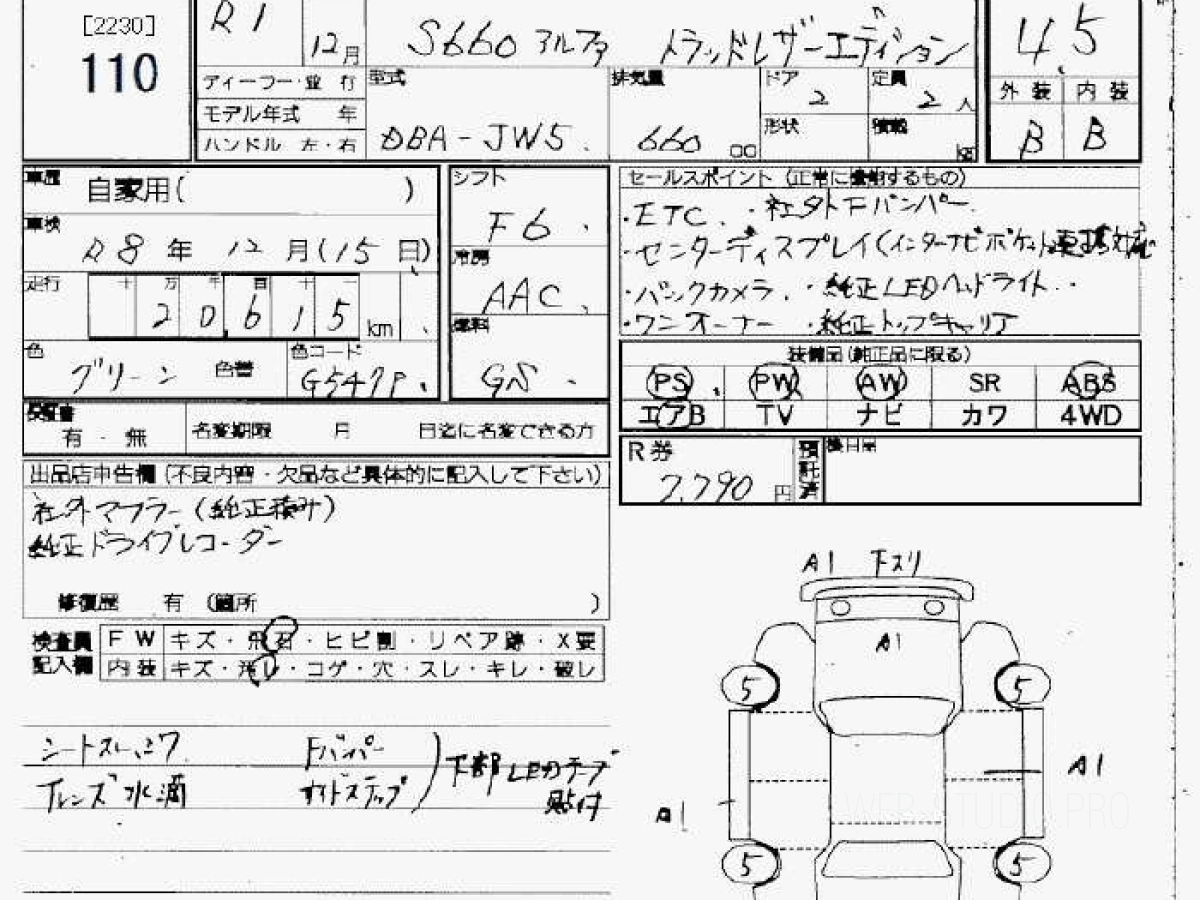 [2230]
110
R1
12月
S660 アルファ トラッドレザーエディション
4.5
ディーラー・並 行
モデル年式 年
ハンドル 左・右
型式
DBA-JW5.
排気量
660 cc
ドア
2
形状
定員
2人
積載
kg
外装 内装
B B
車歴
自家用( )
車検
R8年 12月(15日)
走行
十 万 千 百 十 一
2 0 6 1 5 km
色
グリーン
色替
色コード
G547P.
シフト
F6.
冷房
AAC.
燃料
GS.
セールスポイント (正常に機能するもの)
・ETC. ・社外Fバンパー.
・センターディスプレイ(インターナビポケット連携対応
・バックカメラ. ・純正LEDヘッドライト..
・ワンオーナー ・純正トップキャリア
装備品(純正品に限る)
PS PW AW SR ABS
エアB TV ナビ カワ 4WD
保証書
有 ・ 無
名変期限 月 日迄に名変できる方
R券
7,790円
預託済
後日届
出品店申告欄 (不良内容・欠品など具体的に記入して下さい)
社外マフラー(純正積み)
純正ドライブレコーダー
修復歴 有 (箇所 )
検査員記入欄
FW キズ・飛石・ヒビ割・リペア跡・X要
内装 キズ・汚レ・コゲ・穴・スレ・キレ・破レ
Fバンパー
サイドステップ
下部LEDテープ
貼付
レンズ水滴
A1 下スリ
A1
5 5
A1
A1
5 5
WEB STUDIO PRO